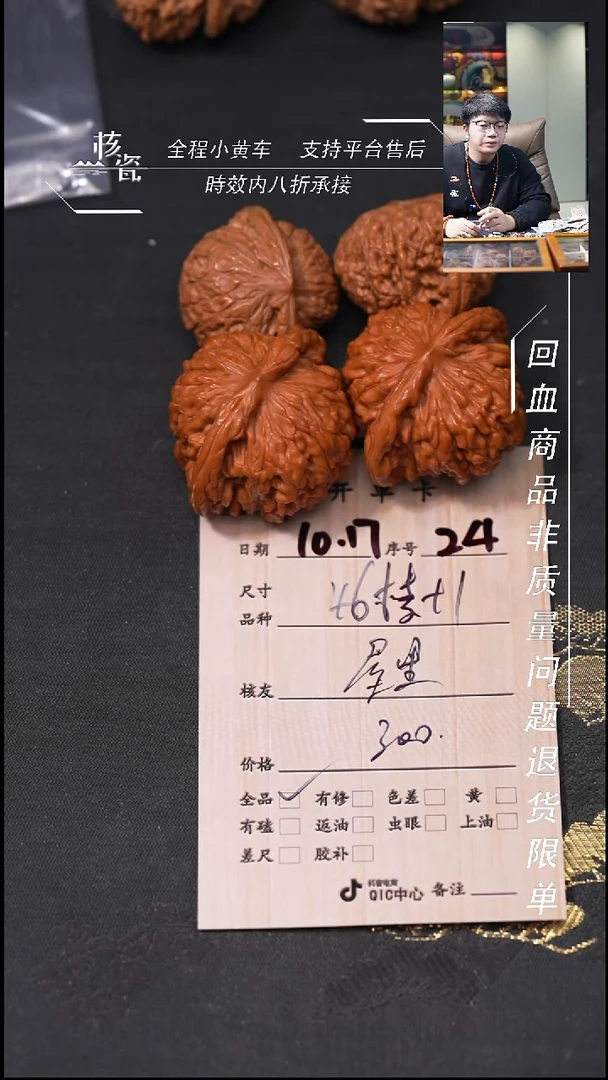 核瓷
全程小黄车 支持平台售后
時效内八折承接
回血商品非质量问题退货限单
开单卡
日期 10.17 序号 24
尺寸
品种
核友
价格 300.
全品 ✓ 有修 色差 黄
有磕 返油 虫眼 上油
差尺 胶补
抖音电商
QIC中心 备注